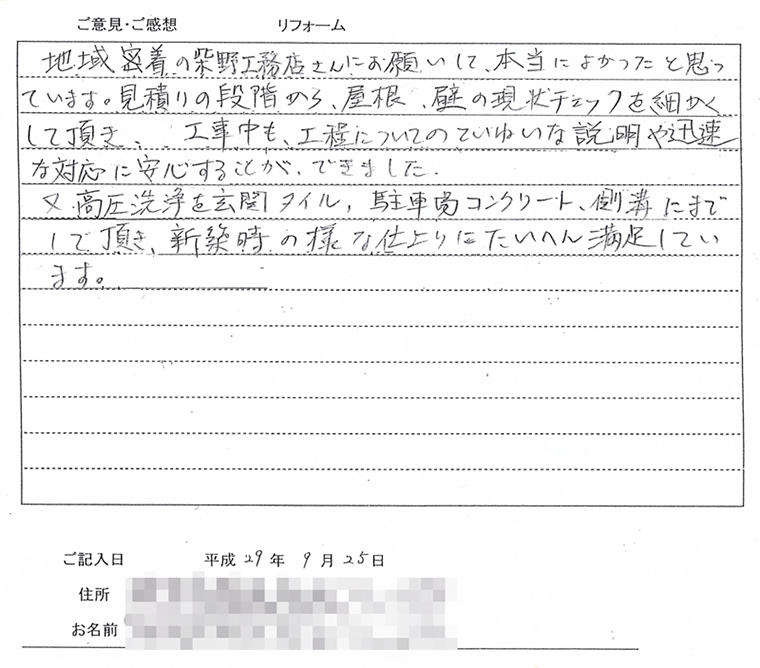 ご意見・ご感想 リフォーム
地域密着の柴野工務店さんにお願いして、本当によかったと思っ
ています。見積りの段階から、屋根、壁の現状チェックを細かく
して頂き、 工事中も、工程についてのていねいな説明や迅速
な対応に安心することが、できました.
又、高圧洗浄を玄関タイル, 駐車場コンクリート、側溝にまで
して頂き、新築時の様な仕上りにたいへん満足してい
ます。
ご記入日 平成29年9月25日
住所
お名前